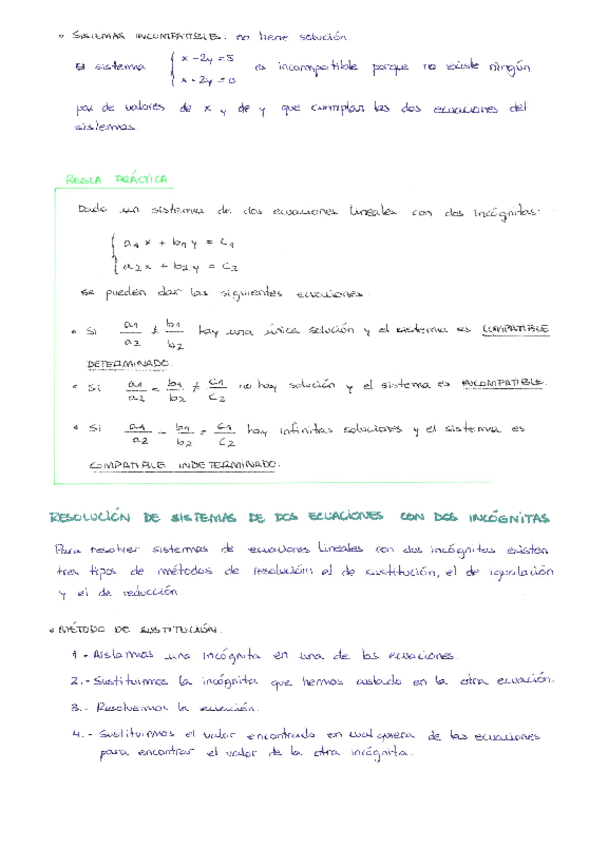 • SISTEMAS INCOMPATIBLES: no tiene solución.
El sistema { x - 2y = 5 es incompatible porque no existe ningún
x - 2y = 0
par de valores de x y de y que cumplan las dos ecuaciones del
sistemas.
REGLA PRÁCTICA
Dado un sistema de dos ecuaciones lineales con dos incógnitas:
{ a1 x + b1 y = c1
a2 x + b2 y = c2
se pueden dar las siguientes ecuaciones.
• Si a1/a2 ≠ b1/b2 hay una única solución y el sistema es COMPATIBLE
DETERMINADO.
• Si a1/a2 = b1/b2 ≠ c1/c2 no hay solución y el sistema es INCOMPATIBLE.
• Si a1/a2 = b1/b2 = c1/c2 hay infinitas soluciones y el sistema es
COMPATIBLE INDETERMINADO.
RESOLUCIÓN DE SISTEMAS DE DOS ECUACIONES CON DOS INCÓGNITAS
Para resolver sistemas de ecuaciones lineales con dos incógnitas existen
tres tipos de métodos de resolución: el de sustitución, el de igualación
y el de reducción.
• MÉTODO DE SUSTITUCIÓN.
1.- Aislamos una incógnita en una de las ecuaciones.
2.- Sustituimos la incógnita que hemos aislado en la otra ecuación.
3.- Resolvemos la ecuación.
4.- Sustituimos el valor encontrado en cualquiera de las ecuaciones
para encontrar el valor de la otra incógnita.